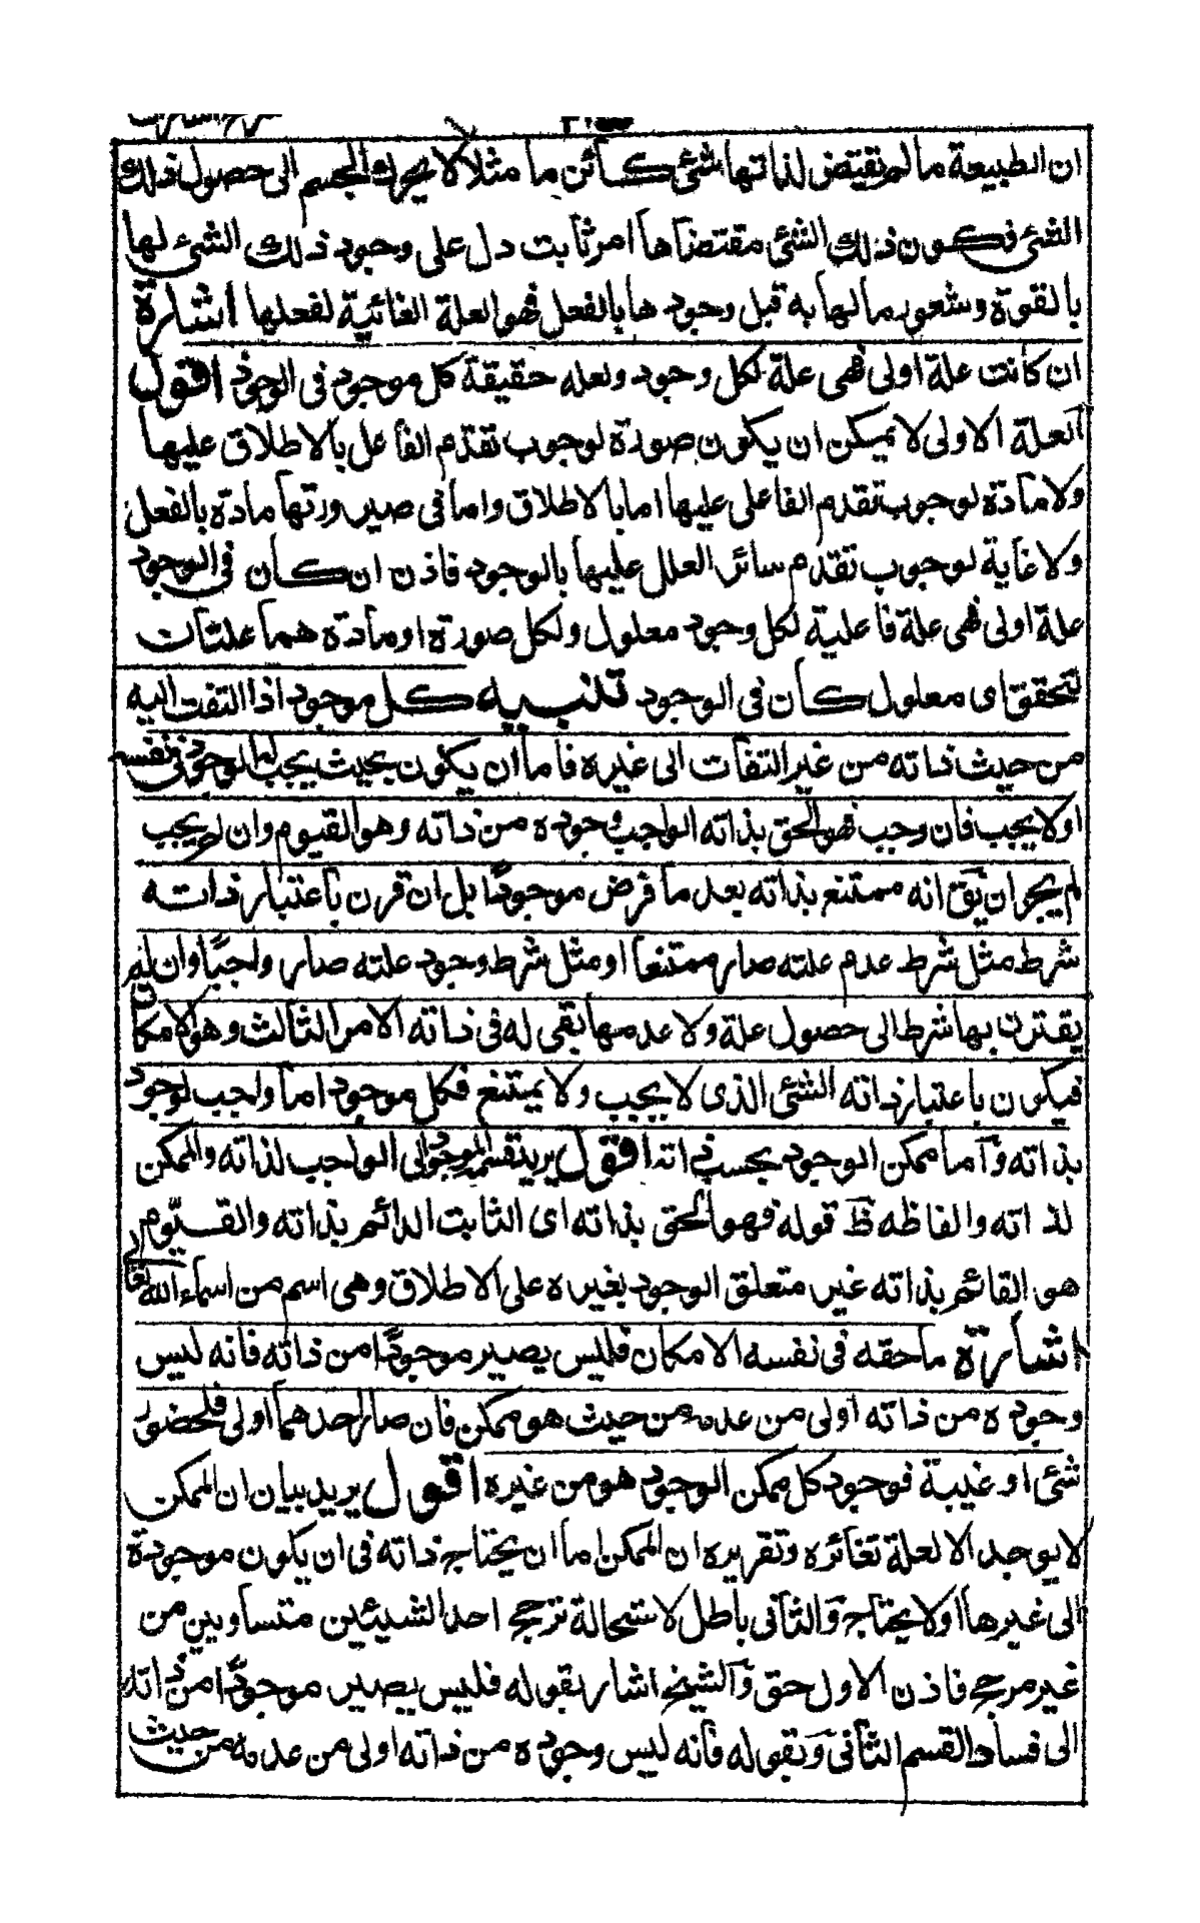 ان الطبيعة ما لم تقتض لذاتها شئ كائن ما مثلا لا يحرك الجسم الى حصول ذلك
الشئ فكون ذلك الشئ مقتضاها امر ثابت دل على وجود ذلك الشئ لها
بالقوة وشعور ما لها به قبل وجودها بالفعل فهو العلة الغائية لفعلها اشارة
ان كانت علة اولى فهى علة لكل وجود ولعله حقيقة كل موجود فى الوجود اقول
العلة الاولى لا يمكن ان يكون صورة لوجوب تقدم الفاعل بالاطلاق عليها
ولا مادة لوجوب تقدم الفاعلى عليها اما بالاطلاق واما فى صيرورتها مادة بالفعل
ولا غاية لوجوب تقدم سائر العلل عليها بالوجود فاذن ان كان فى الوجود
علة اولى فهى علة فاعلية لكل وجود معلول ولكل صورة او مادة هما علتان
لتحقق اى معلول كان فى الوجود تنبيه كل موجود اذا التفت اليه
من حيث ذاته من غير التفات الى غيره فاما ان يكون بحيث يجب له الوجود فى نفسه
اولا يجب فان وجب فهو الحق بذاته الواجب وجوده من ذاته وهو القيوم وان لم يجب
لم يجز ان يق انه ممتنع بذاته بعد ما فرض موجودًا بل ان قرن باعتبار ذاته
شرط مثل شرط عدم علته صار ممتنعا او مثل شرط وجود علته صار واجبًا وان لم
يقترن بها شرط الى حصول علة ولا عدمها بقى له فى ذاته الامر الثالث وهو الامكان
فيكون باعتبار ذاته الشئ الذى لا يجب ولا يمتنع فكل موجود اما واجب لوجود
بذاته وآما ممكن الوجود بحسب ذاته اقول يريد تقسيم الموجود الى الواجب لذاته والممكن
لذاته والفاظه ظ قوله فهو الحق بذاته اى الثابت الدائم بذاته والقيّوم
هو القائم بذاته غير متعلق الوجود بغيره على الاطلاق وهى اسم من اسماء الله تعالى
اشارة ما حقه فى نفسه الامكان فليس يصير موجودًا من ذاته فانه ليس
وجوده من ذاته اولى من عدمه من حيث هو ممكن فان صار احدهما اولى فلحضور
شئ او غيبة فوجود كل ممكن الوجود هو من غيره اقول يريد بيان ان الممكن
لا يوجد الا لعلة تغائره وتقريره ان الممكن اما ان يحتاج ذاته فى ان يكون موجودة
الى غيرها اولا يحتاج وَالثانى باطل لاستحالة ترجح احد الشيئين متساويين من
غير مرجح فاذن الاول حق وَالشيخ اشار بقوله فليس يصير موجودًا من ذاته
الى فساد القسم الثانى وَبقوله فانه ليس وجوده من ذاته اولى من عدمه من حيث